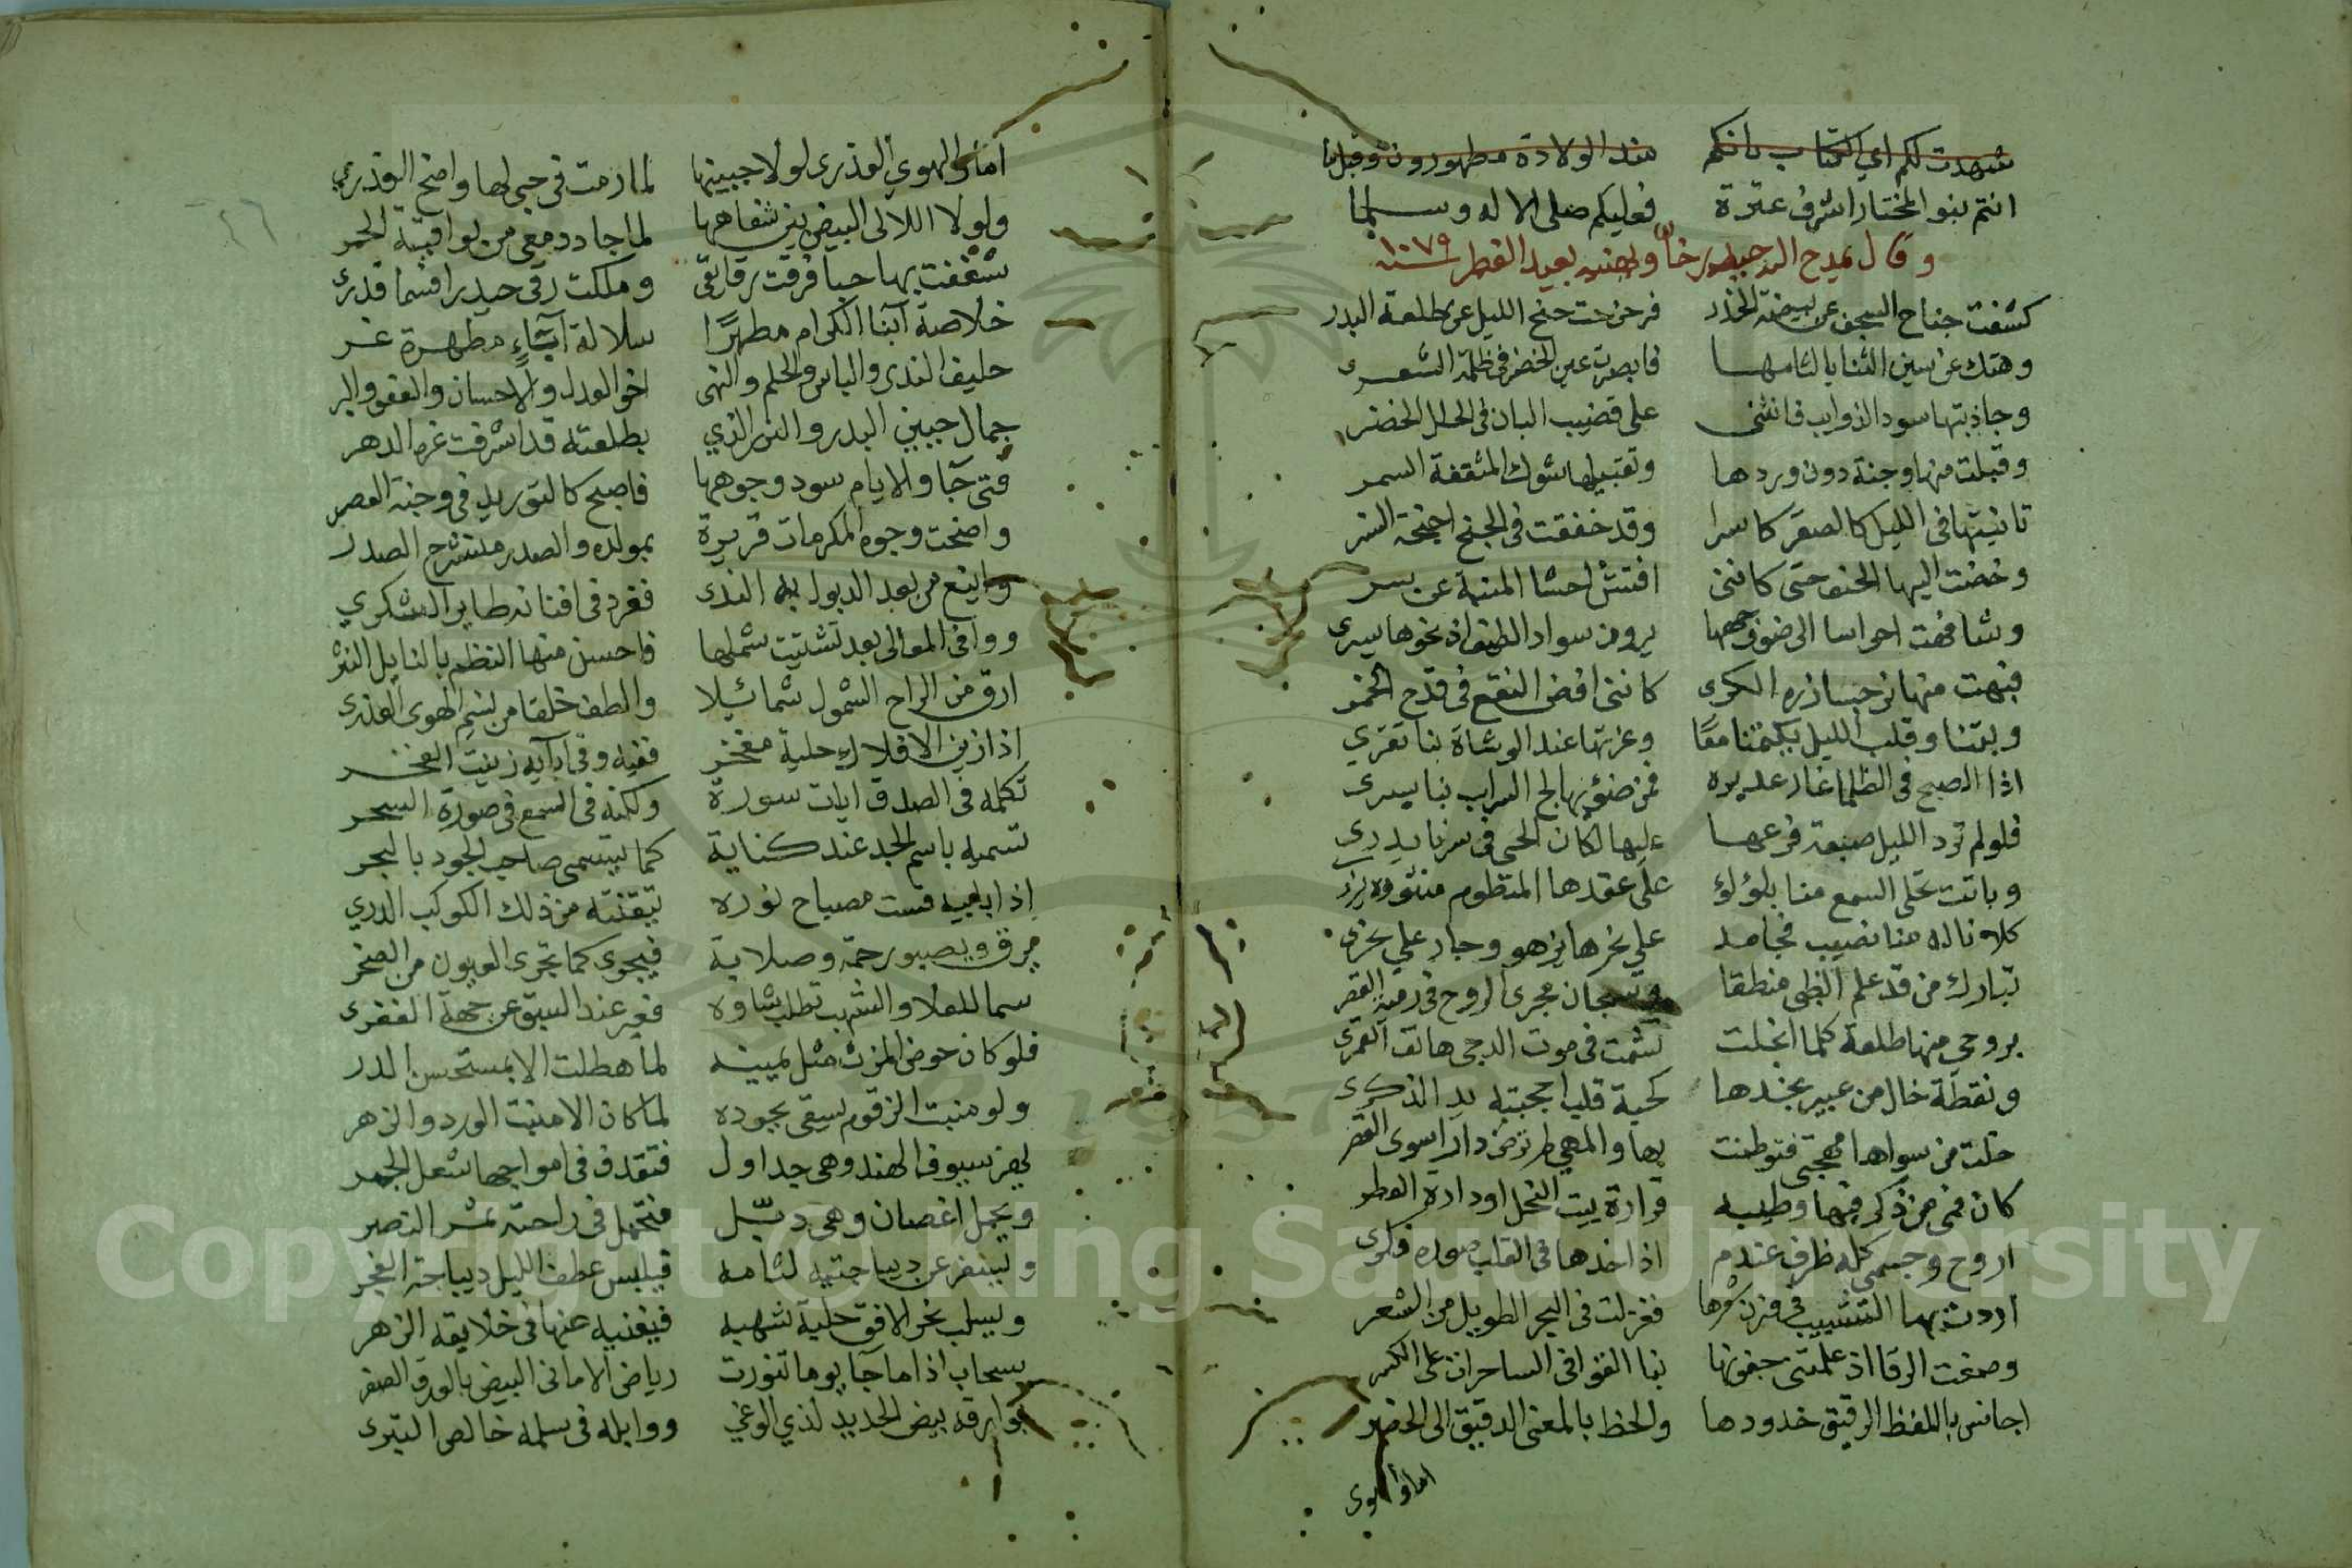 شهدت لكم اي الكتاب بانكم منذ الولادة مطهورون وقبلما
انتم بنو المختار اشرف عترة فعليكم صلى الاله وسلما
وقال يمدح السيد حيدر خان ويهنيه بعيد الفطر سنة ١٠٧٩
كشفت جناح السجف عن بيضة الخدر فزحزحت جنح الليل عن طلعة البدر
وهتك عن سين الثنايا لثامها فابصرت عين الخضر في ظلمة الشعر
وجاذبتها سود الذوايب فانثنى على قضيب البان في الحلل الخضر
وقبلت منها وجنة دون وردها وتقبيلها شوك المثقفة السمر
تانيتها في الليل كالصقر كاسرا وقد خفقت في الجنح اجنحة النسر
وخضت اليها الحتف حتى كانني افتش احشا المنية عن سر
وشافهت احراسا الى ضوء وجهها يرون سواد الطيف اذ نحوها يسرى
فنبهت منها نرجسا زره الكرى كانني افض النقع في قدح الخمر
وبتنا وقلب الليل يكتمنا معا وغرتها عند الوشاة بنا تغري
اذا الصبح في الظلما غار غديره فمن ضوئها لج السراب بنا يسرى
فلو لم ترد الليل صبغة فرعها عليها لكان الحي في سرنا يدرى
وباتت تحلى السمع منا بلؤلؤ على عقدها المنظوم منثوره يزرى
كلانا له منا نصيب فجامد على نحرها يزهو وجار على نحرى
تبارك من قد علم الظبي منطقا وسبحان مجرى الروح في دمية القصر
بروحي منها طلعة كلما انجلت تشمت في موت الدجى هاتف القمرى
ونقطة خال من عبير بخدها كحبة قلب احجبته يد الذكرى
خلت من سواها مهجتي فتوطنت بها والمهى لم ترض دارا سوى القفر
كان فمى من ذكر فيها وطيبه قرارة بيت النحل او دارة العطر
اروح وجسمي كله طرف عندم اذا خدها في القلب صوره فكرى
اردت بها التشبيب في وزن شعرها فغزلت في البحر الطويل من الشعر
وصغت الرقا اذ علمتني جفونها بنا القوافي الساحرات على الكسر
اجانس باللفظ الرقيق خدودها والحظ بالمعنى الدقيق الى الخصر
اما والهوى
اما والهوى العذرى لولا جبينها لما رمت في حبي لها واضح العذر
ولولا اللالى البيض بين شفاهها لما جاد دمعي من يواقيته الحمر
شغفت بها حبا فرقت رقائقي وملكت رقى حيدرا فسما قدرى
خلاصة آبنا الكرام مطهرا سلالة آباء مطهرة غر
حليف الندى والباس والحلم والنهى اخو العدل والاحسان والعفو والبر
جمال جبين البدر والنير الذي بطلعته قد اشرقت غرة الدهر
فتى جآ والايام سود وجوهها فاصبح كالتوريد في وجنة العصر
واضحت وجوه المكرمات قريرة بمولده والصدر منشرح الصدر
واينع من بعد الذبول به الندى فغرد في افنانه طاير الشكر
ووافى المعالى بعد تشتيت شملها فاحسن منها النظم بالنايل النثر
ارق من الراح الشمول شمائلا والطف خلقا من نسيم الهوى العذرى
اذا زين الافلاك حلية مفخر ففيه وفي آبآيه زينة الفخر
تكلمه في الصدق ايات سورة ولكنه في السمع في صورة السحر
تسميه باسم الجد عند كناية كما يتسمى صاحب الجود بالبحر
اذا بابيه قست مصباح نوره تيقنته من ذلك الكوكب الدري
يرق ويصبو رحمة وصلابة فيجرى كما تجرى العيون من الصخر
سما للعلا والشهب تطلب شاوه فعبر عند السبق عن جهة الغفر
فلو كان حوض المزن مثل يمينه لما هطلت الا بمستحسن الدر
ولو منبت الزقوم يسقى بجوده لما كان الا منبت الورد والزهر
يهز سيوف الهند وهي جداول فتقذف في امواجها شعل الجمر
ويحمل اغصان وهي ذبل فتحمل في راحته ثمر النصر
ويسفر عن ديباجتيه لثامه فيلبس عطف الليل ديباجة الفجر
ويسلب نحر الافق حلية شهبه فيغنيه عنها في خلايقه الزهر
سحاب اذا ما جآ يوما تنورت رياض الاماني البيض بالورق الصفر
بوارقه بيض الحديد لذي الوغى ووابله في سلمه خالص التبر